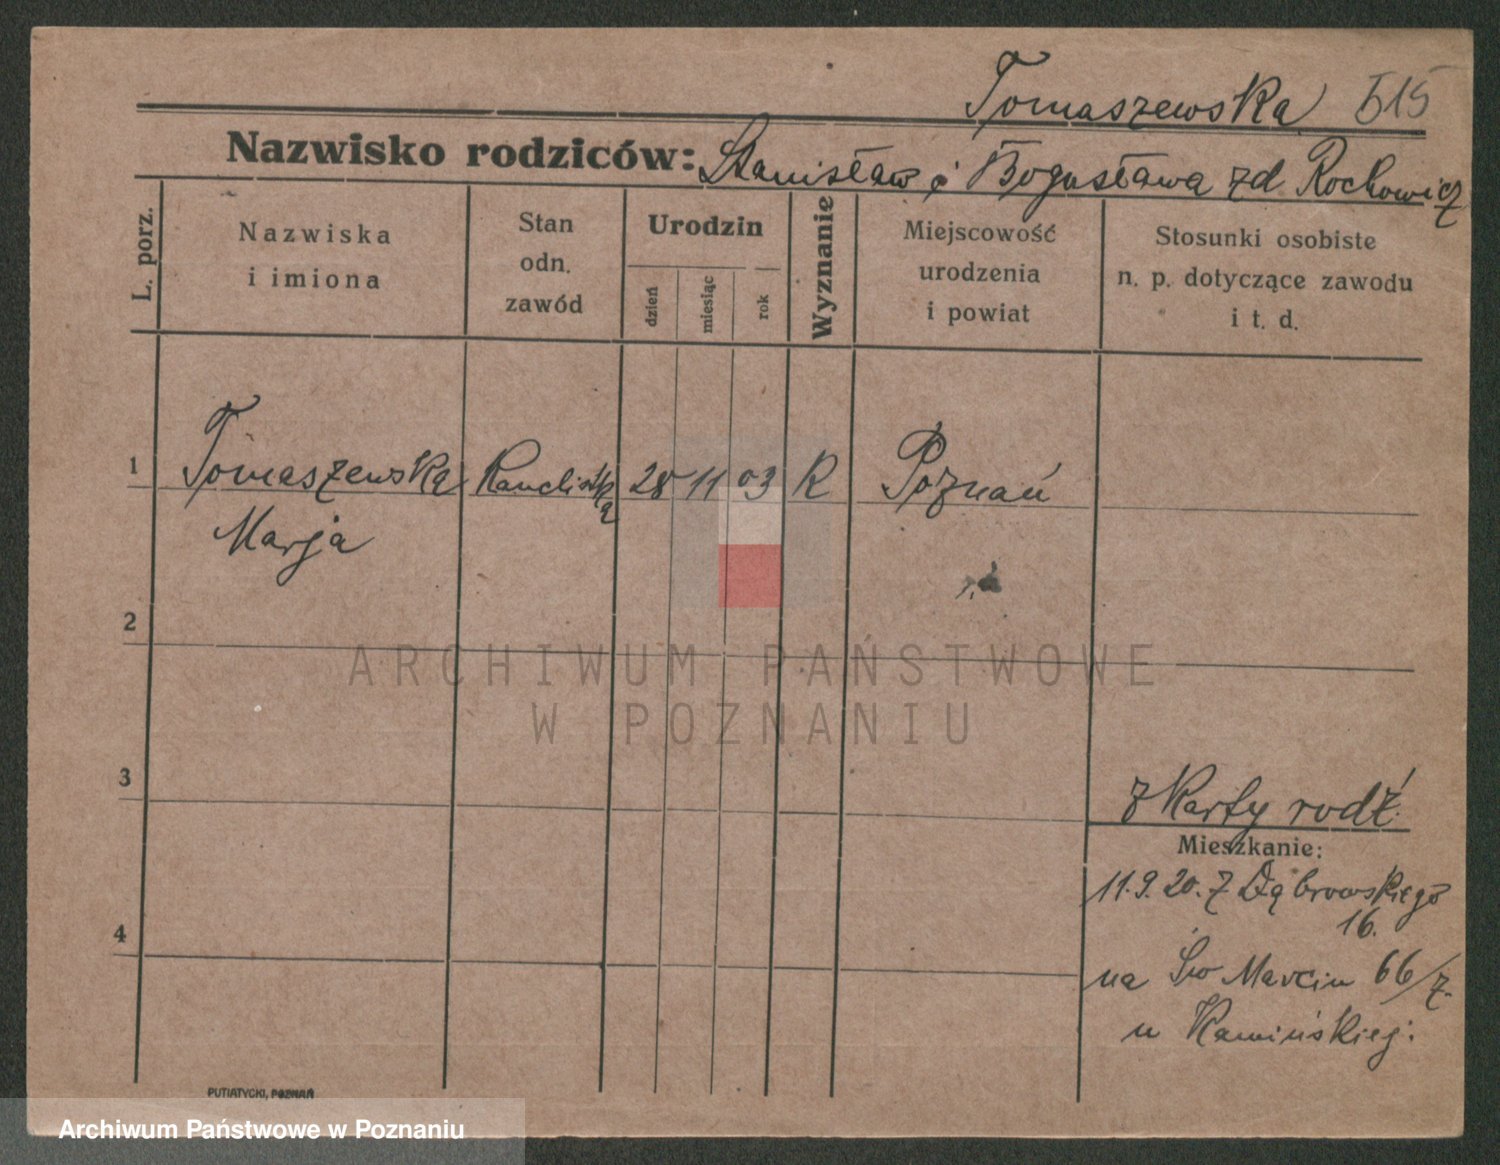 Tomaszewska 515
Nazwisko rodziców: Stanisław i Bogusława zd. Rochowicz
L. porz.
Nazwiska
i imiona
Stan
odn.
zawód
Urodzin
dzień
miesiąc
rok
Wyznanie
Miejscowość
urodzenia
i powiat
Stosunki osobiste
n. p. dotyczące zawodu
i t. d.
1
Tomaszewska
Marja
28 11 03 R Poznań
2
ARCHIWUM PAŃSTWOWE
W POZNANIU
3
z Karty rodź.
Mieszkanie:
11.9.20. z Dąbrowskiego
16.
4
na Św Marcin 66/7.
u Kamińskiej.
PUTIATYCKI, POZNAŃ
Archiwum Państwowe w Poznaniu